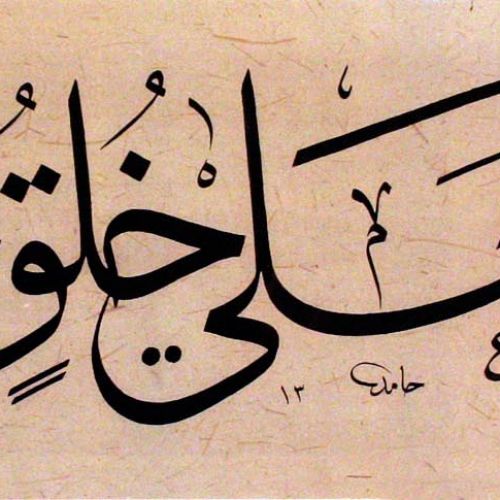 علي خُلُقٍ
حامد ١٣